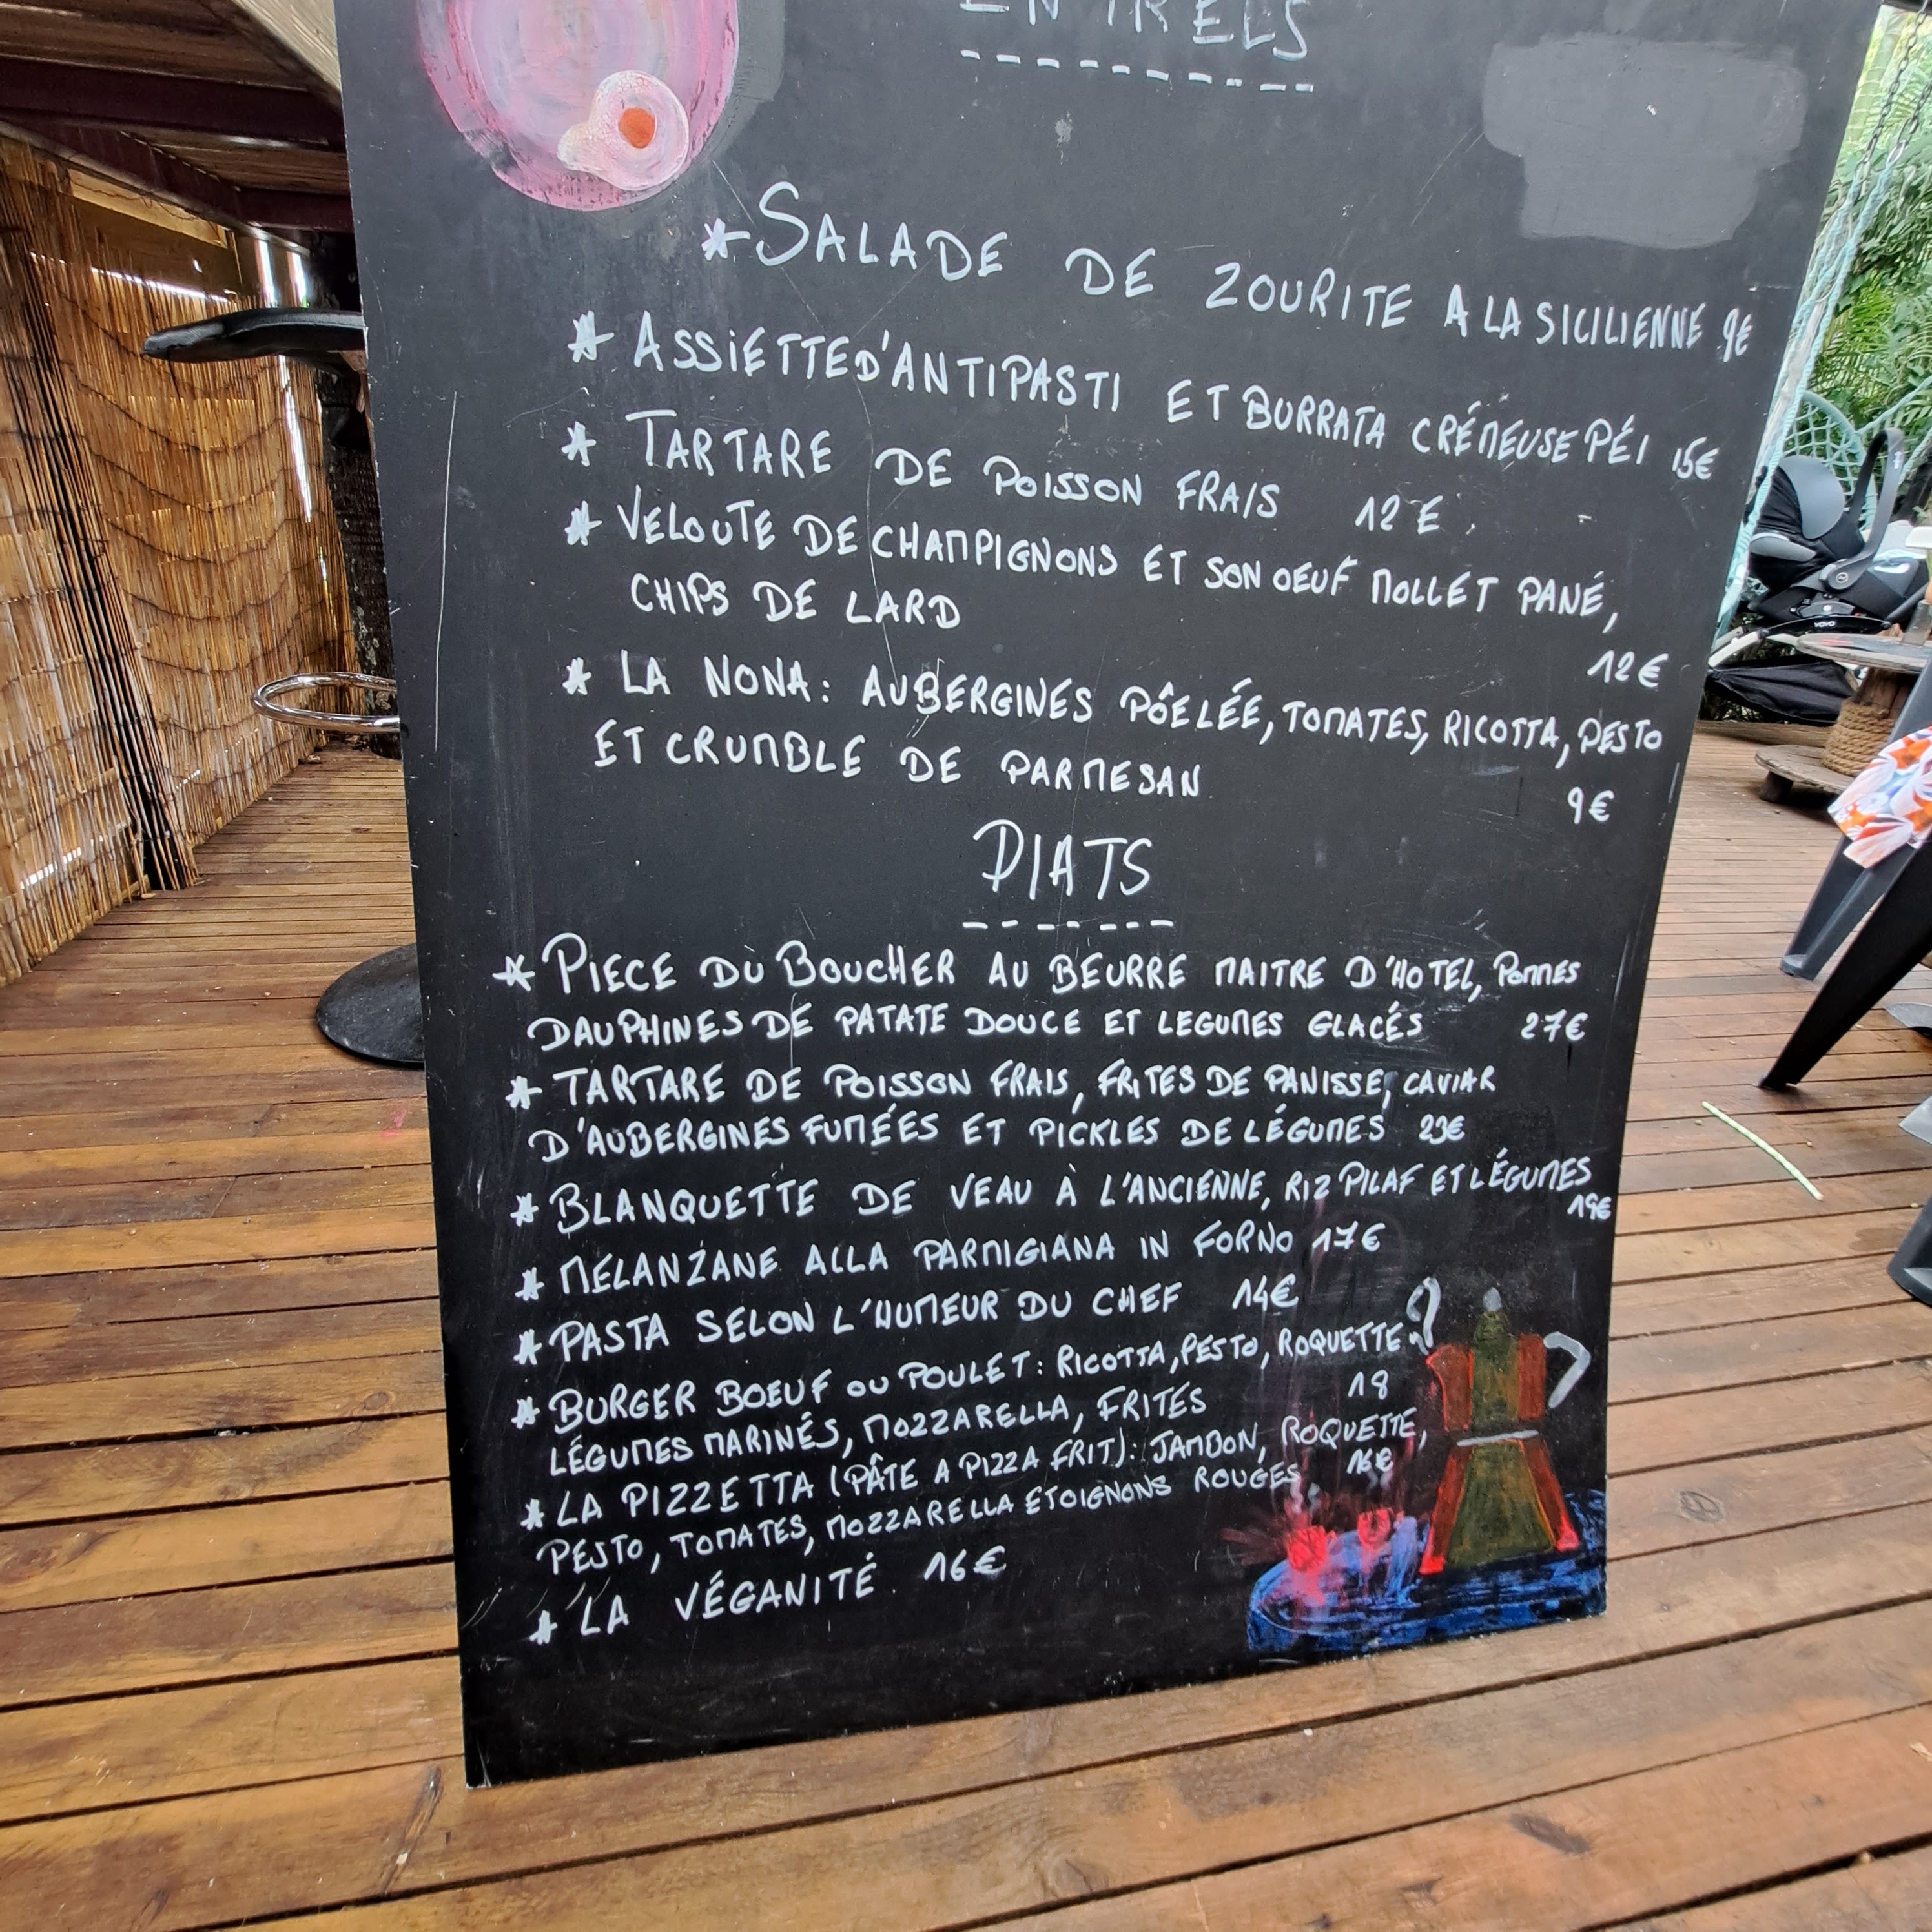 ENTRÉES
* SALADE DE ZOURITE A LA SICILIENNE 9€
* ASSIETTE D'ANTIPASTI ET BURRATA CRÉMEUSE PÉI 15€
* TARTARE DE POISSON FRAIS 12€
* VELOUTE DE CHAMPIGNONS ET SON OEUF MOLLET PANÉ,
CHIPS DE LARD
12€
* LA NONA: AUBERGINES PÔELÉE, TOMATES, RICOTTA, PESTO
ET CRUMBLE DE PARMESAN
9€
PLATS
* PIECE DU BOUCHER AU BEURRE MAITRE D'HOTEL, POMMES
DAUPHINES DE PATATE DOUCE ET LEGUMES GLACÉS 27€
* TARTARE DE POISSON FRAIS, FRITES DE PANISSE, CAVIAR
D'AUBERGINES FUMÉES ET PICKLES DE LÉGUMES 23€
* BLANQUETTE DE VEAU À L'ANCIENNE, RIZ PILAF ET LÉGUMES
19€
* MELANZANE ALLA PARMIGIANA IN FORNO 17€
* PASTA SELON L'HUMEUR DU CHEF 14€
* BURGER BOEUF OU POULET: RICOTTA, PESTO, ROQUETTE
LÉGUMES MARINÉS, MOZZARELLA, FRITES 18
* LA PIZZETTA (PÂTE A PIZZA FRIT): JAMBON, ROQUETTE,
PESTO, TOMATES, MOZZARELLA ET OIGNONS ROUGES 16€
* LA VÉGANITÉ 16€